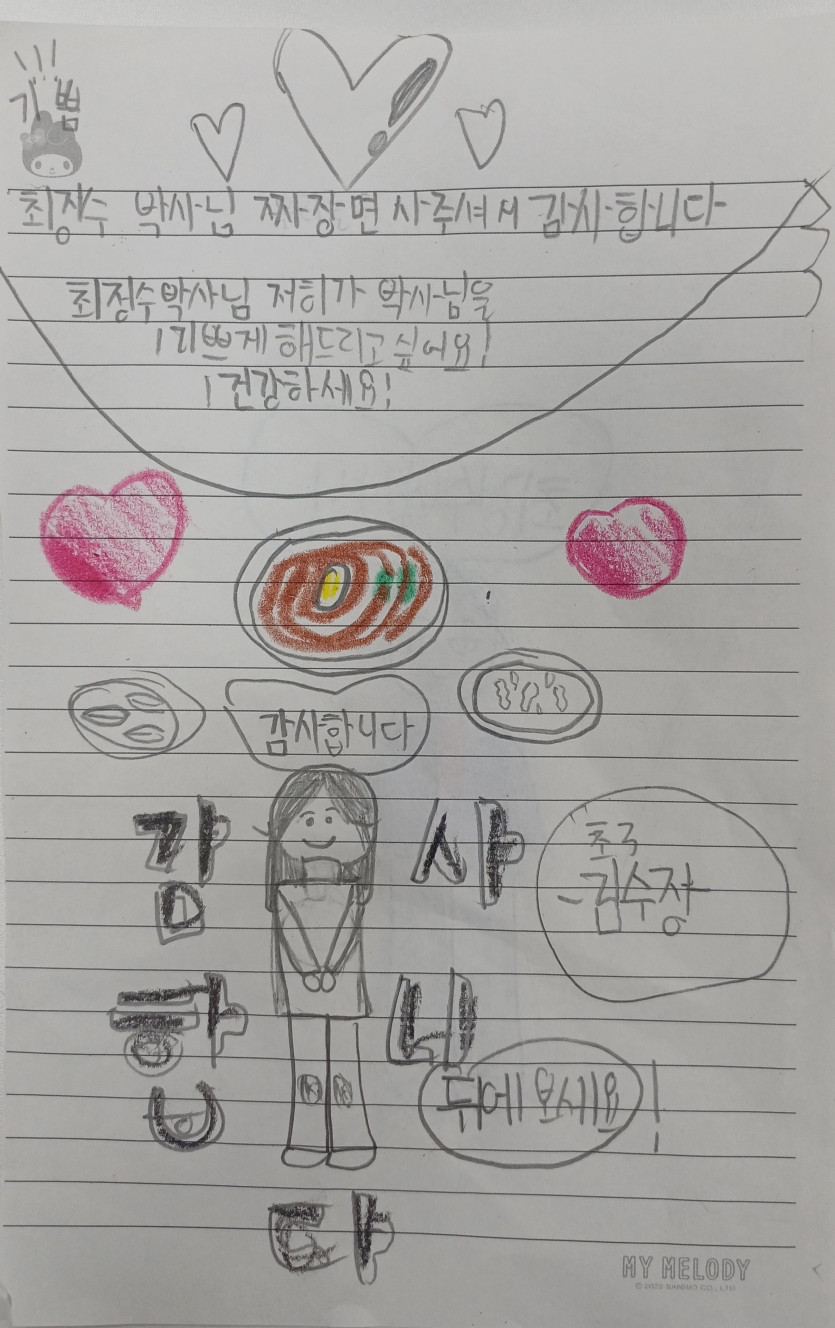 기쁨
최정수 박사님 짜장면 사주셔서 감사합니다
최정수박사님 저희가 박사님을
기쁘게 해드리고 싶어요!
건강하세요!
감사합니다
감사
-김수장
합니
뒤에 보세요!
다
MY MELODY